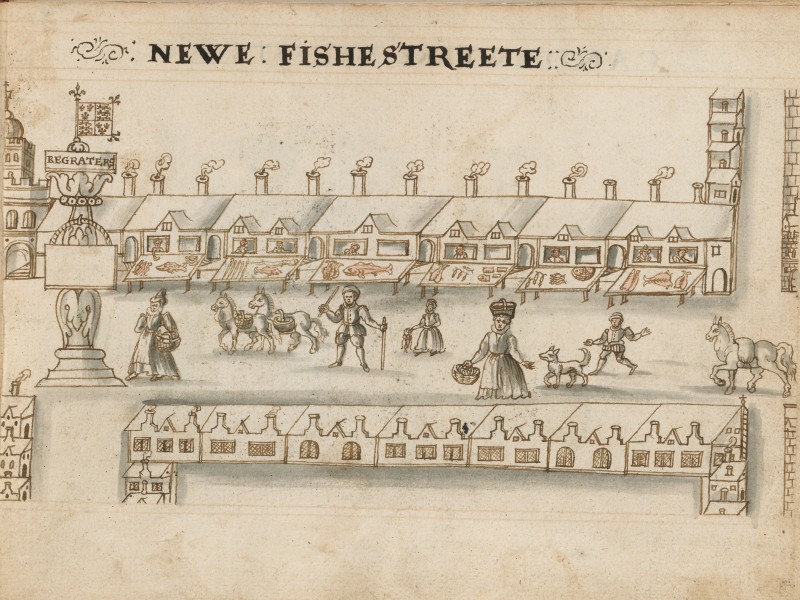 NEWE : FISHESTREETE
REGRATERS